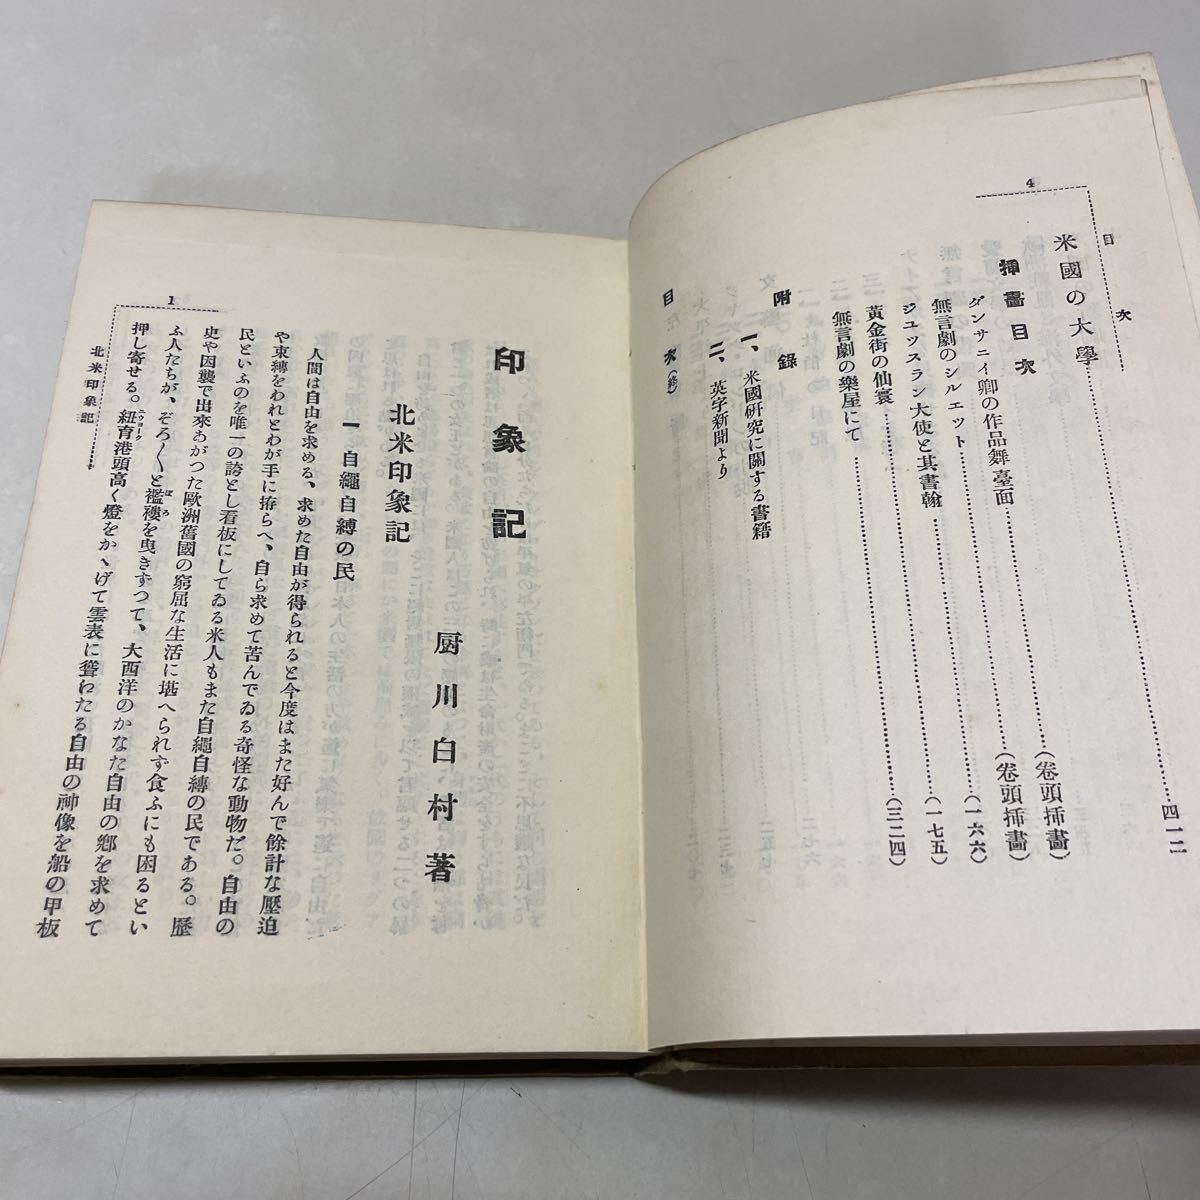 4
目次
米國の大學……四一二
挿畫目次
ダンサニイ卿の作品舞臺面……(卷頭挿畫)
無言劇のシルエット……(卷頭挿畫)
ジユッスラン大使と其書翰……(一六六)
黃金街の仙寰……(一七五)
無言劇の樂屋にて……(三二四)
附錄
一、米國硏究に關する書籍
二、英字新聞より
目次(終)
印象記
厨川白村著
北米印象記
一 自繩自縛の民
人間は自由を求める、求めた自由が得られると今度はまた好んで餘計な壓迫
や束縛をわれとわが手に拵らへ、自ら求めて苦んでゐる奇怪な動物だ。自由の
民といふのを唯一の誇とし看板にしてゐる米人もまた自繩自縛の民である。歷
史や因襲で出來あがつた歐洲舊國の窮屈な生活に堪へられず食ふにも困るとい
ふ人たちが、ぞろ〱と襤褸を曳きずつて、大西洋のかなた自由の鄕を求めて
押し寄せる。紐育港頭高く燈をかゝげて雲表に聳わたる自由の神像を船の甲板
1
北米印象記